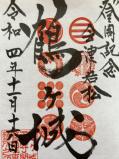 登閣記念
会津若松
鶴ヶ城
令和四年十一月十一日